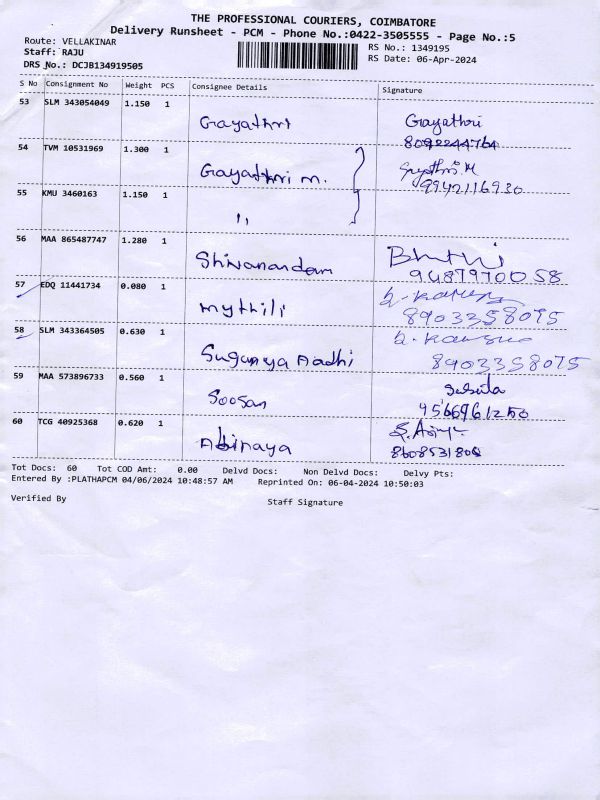 THE PROFESSIONAL COURIERS, COIMBATORE
Delivery Runsheet - PCM - Phone No.:0422-3505555 - Page No.:5
Route: VELLAKINAR
Staff: RAJU RS No.: 1349195
DRS No.: DCJB134919505 RS Date: 06-Apr-2024
S No Consignment No Weight PCS Consignee Details Signature
53 SLM 343054049 1.150 1
Gayathri Gayathri
8092244764
54 TVM 10531969 1.300 1
Gayathri m. Gayathri M
9942116930
55 KMU 3460163 1.150 1
,,
56 MAA 865487747 1.280 1
Shivanandam
9487970058
57 EDQ 11441734 0.080 1
mythili
8903358075
58 SLM 343364505 0.630 1
Suganya Aadhi
8903358075
59 MAA 573896733 0.560 1
Soosan
60 TCG 40925368 0.620 1
Abinaya
Tot Docs: 60 Tot COD Amt: 0.00 Delvd Docs: Non Delvd Docs: Delvy Pts:
Entered By :PLATHAPCM 04/06/2024 10:48:57 AM Reprinted On: 06-04-2024 10:50:03
Verified By Staff Signature